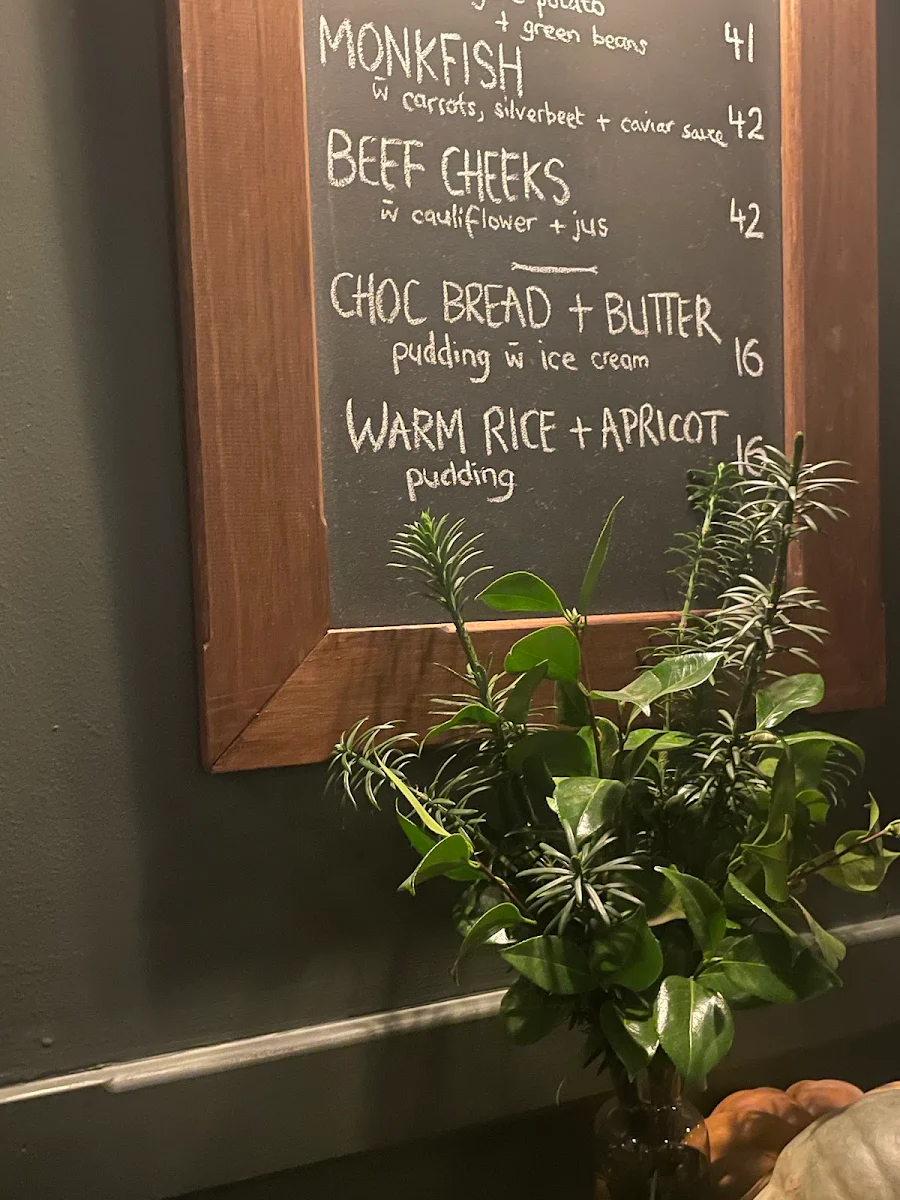 potato
+ green beans 41
MONKFISH
w̄ carrots, silverbeet + caviar sauce 42
BEEF CHEEKS
w̄ cauliflower + jus 42
CHOC BREAD + BUTTER
pudding w̄ ice cream 16
WARM RICE + APRICOT
pudding 16